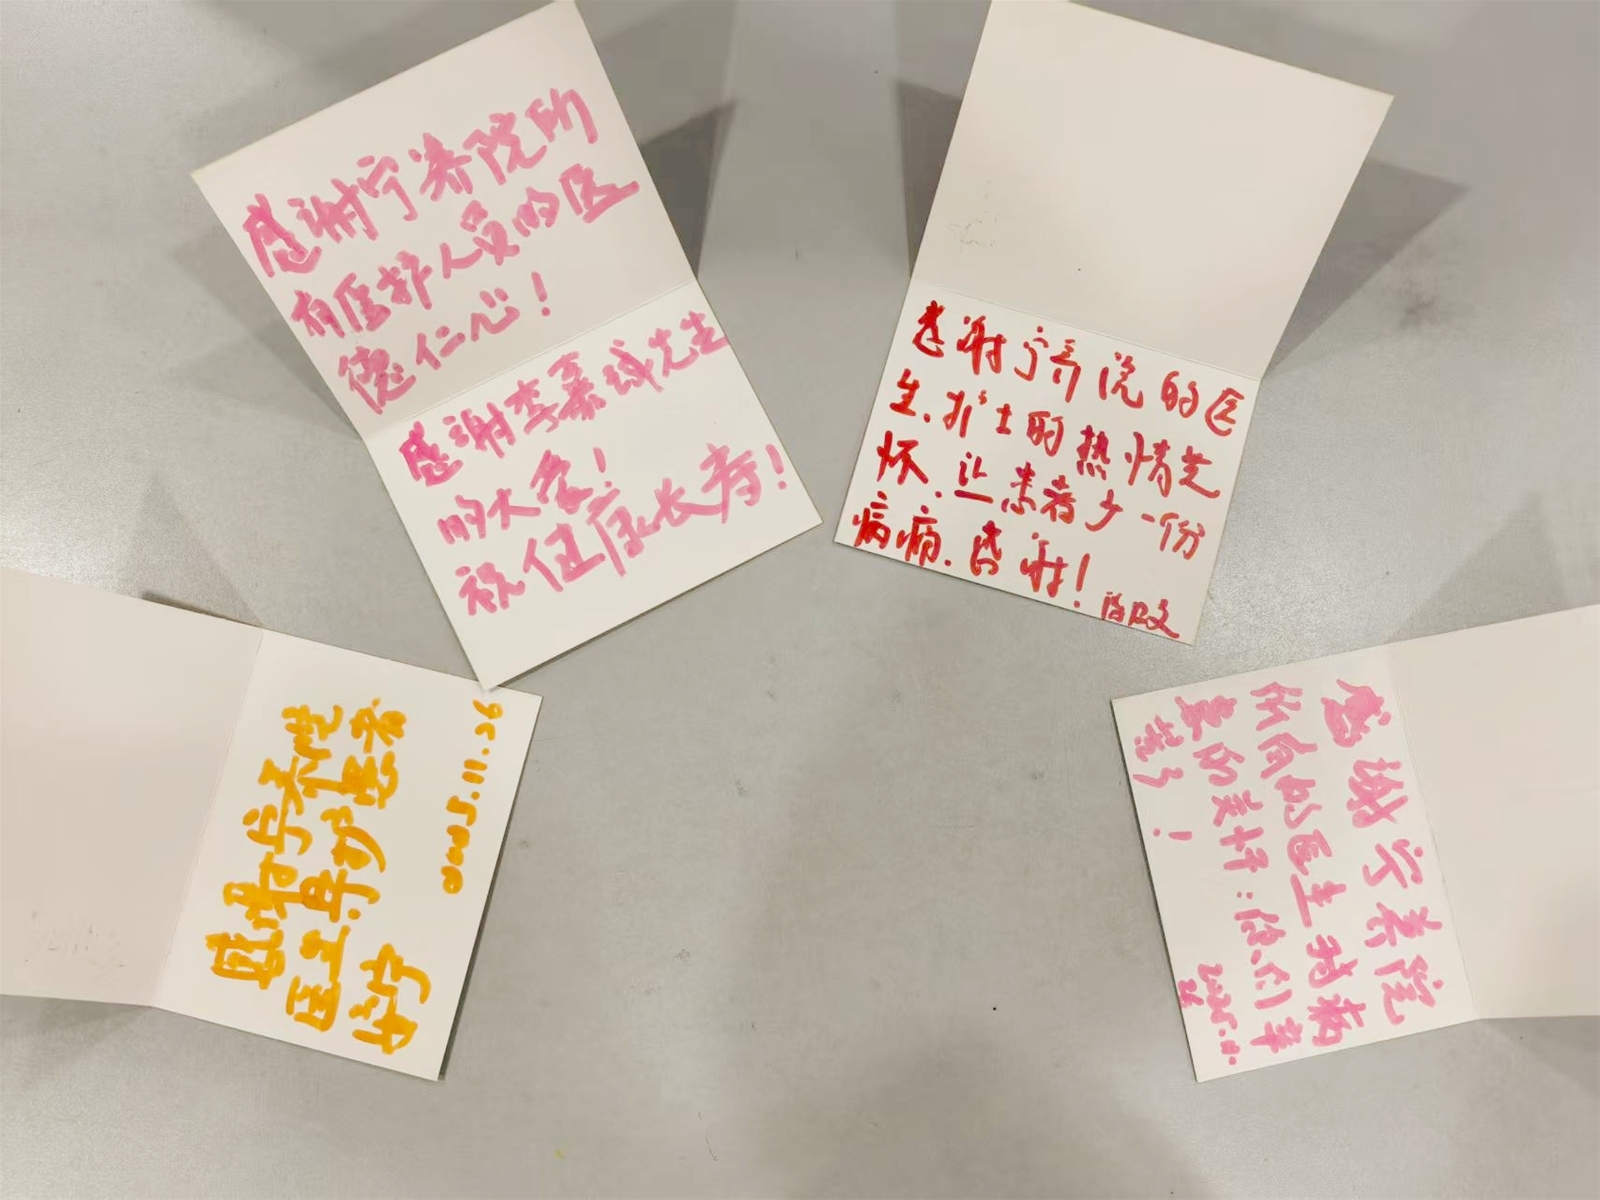 感谢宁养院所
有医护人员的医
德仁心！
感谢李嘉诚先生
的大爱！
祝健康长寿！
感谢宁养院的医
生、护士的热情关
怀、让患者少一份
病痛、感谢！
感谢宁养院
医生、护
2025.11.26
感谢宁养院
所有的医生我病
最的关怀：你们辛
苦了！